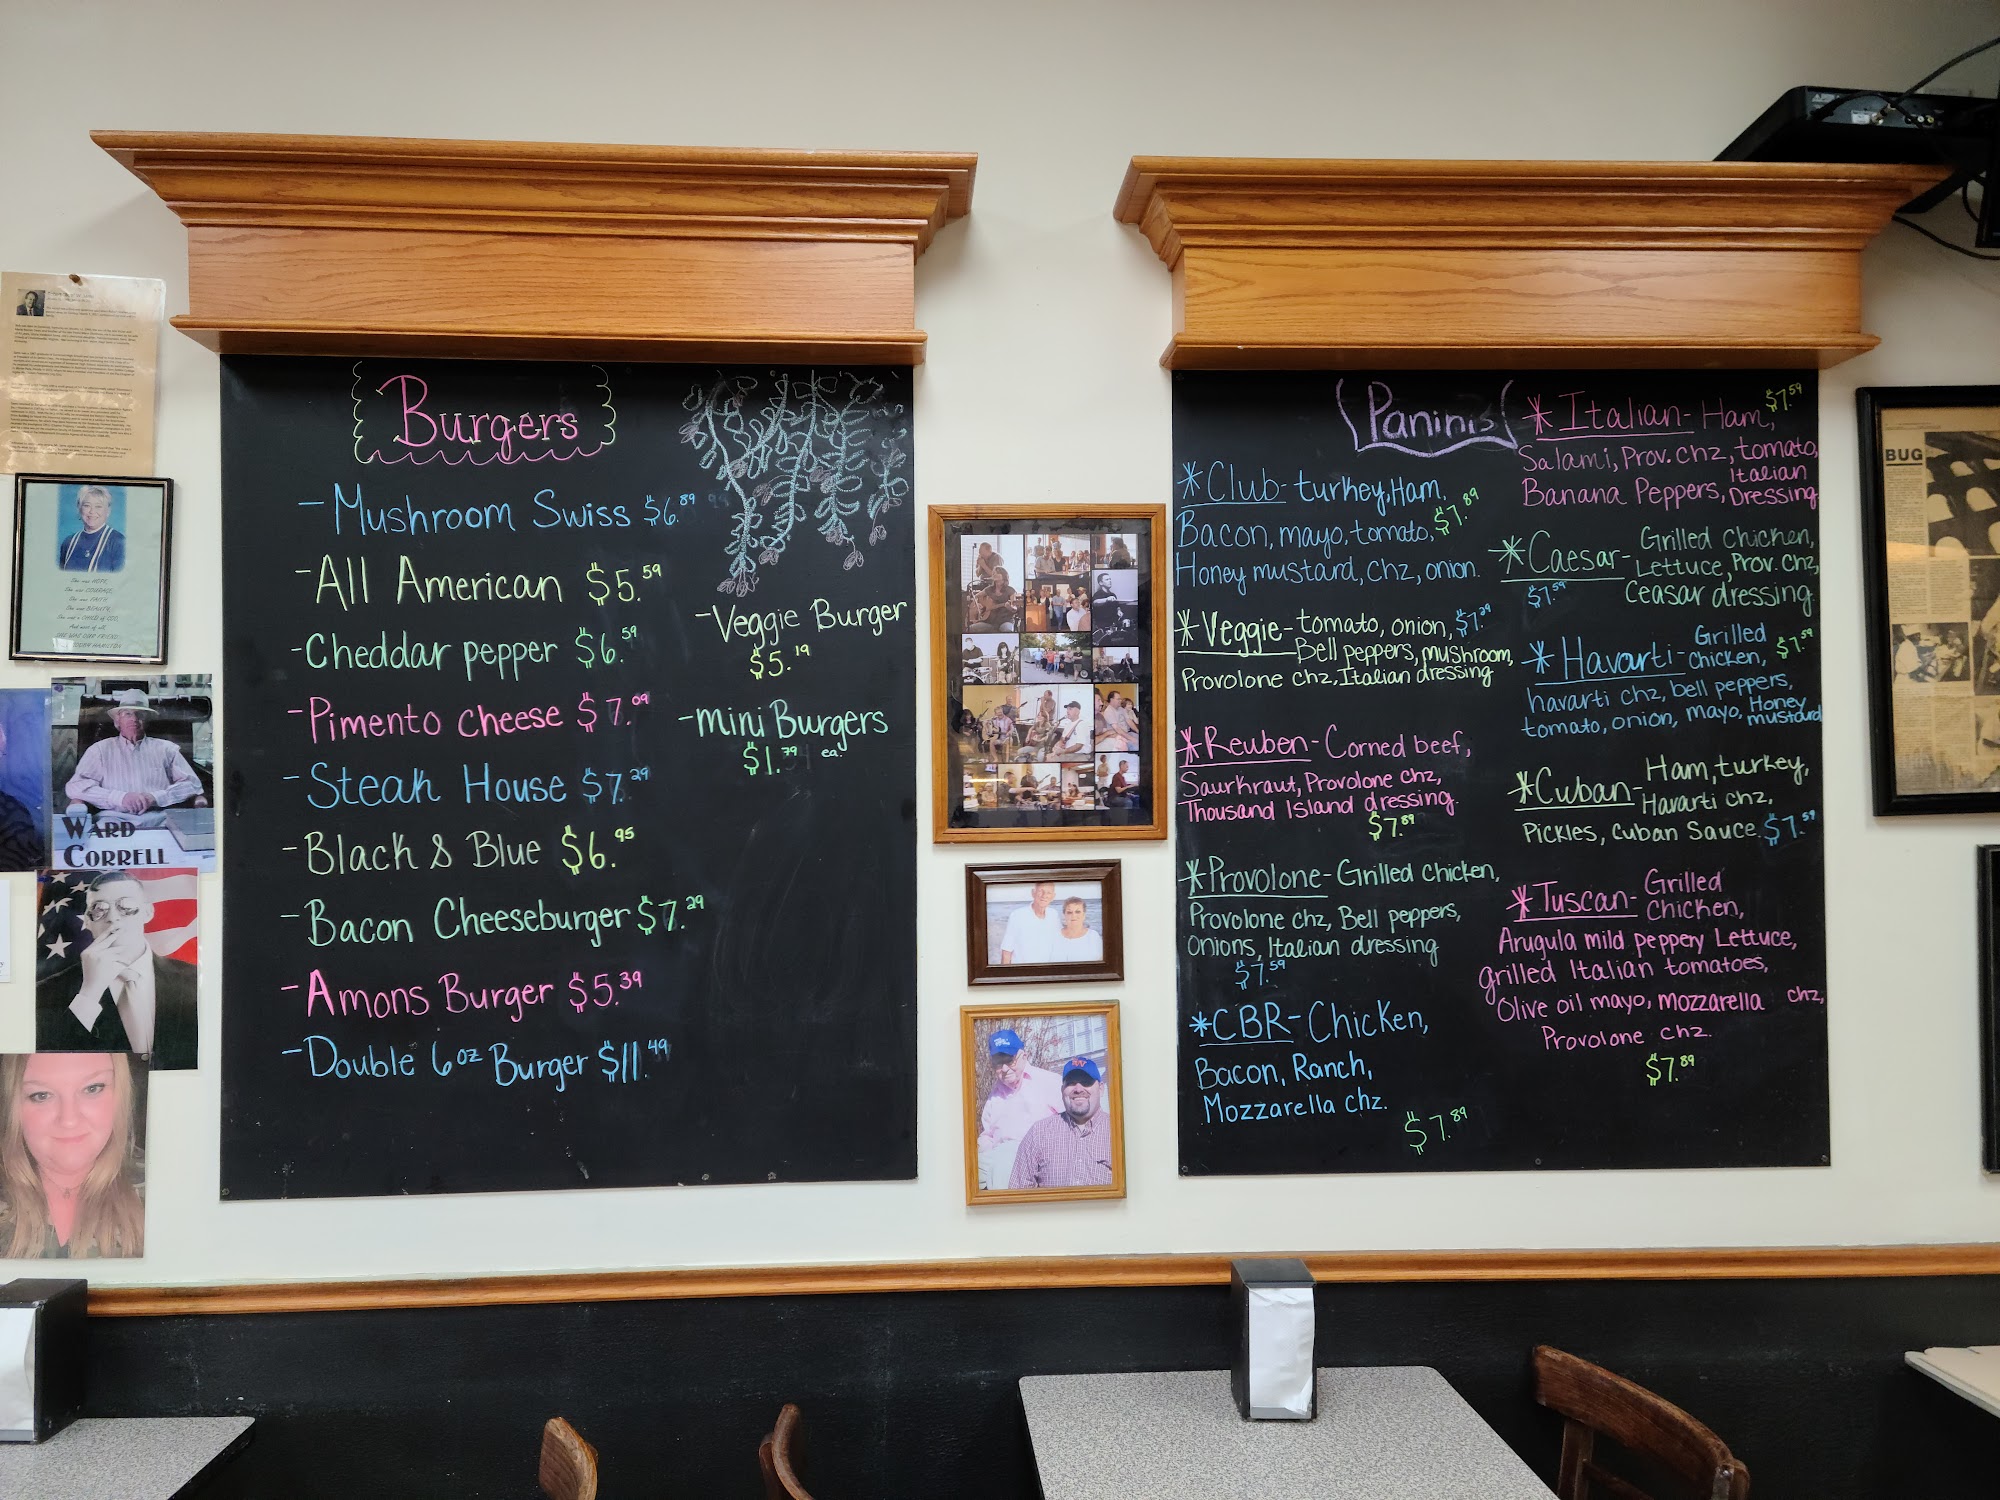 Burgers
-Mushroom Swiss $6.89
-All American $5.59
-Cheddar pepper $6.59
-Pimento cheese $7.09
-Steak House $7.29
-Black & Blue $6.95
-Bacon Cheeseburger $7.29
-Amons Burger $5.39
-Double 6oz Burger $11.49
-Veggie Burger
$5.19
-mini Burgers
$1.79 ea.
Paninis
*Club-turkey, Ham,
Bacon, mayo, tomato, $7.89
Honey mustard, chz, onion.
*Veggie-tomato, onion, $7.29
Bell peppers, mushroom,
Provolone chz, Italian dressing
*Reuben-Corned beef,
Saurkraut, Provolone chz,
Thousand Island dressing.
$7.89
*Provolone-Grilled chicken,
Provolone chz, Bell peppers,
Onions, Italian dressing
$7.59
*CBR-Chicken,
Bacon, Ranch,
Mozzarella chz.
$7.89
*Italian-Ham, $7.59
Salami, Prov. chz, tomato,
Banana Peppers, Italian
Dressing
*Caesar-Grilled chicken,
Lettuce, Prov. chz,
$7.59 Ceasar dressing.
*Havarti-Grilled
chicken, $7.59
havarti chz, bell peppers,
tomato, onion, mayo, Honey
mustard
*Cuban-Ham, turkey,
Havarti chz,
Pickles, Cuban Sauce. $7.59
*Tuscan-Grilled
Chicken,
Arugula mild peppery Lettuce,
grilled Italian tomatoes,
Olive oil mayo, mozzarella chz,
Provolone chz.
$7.89
WARD
CORRELL
BUG